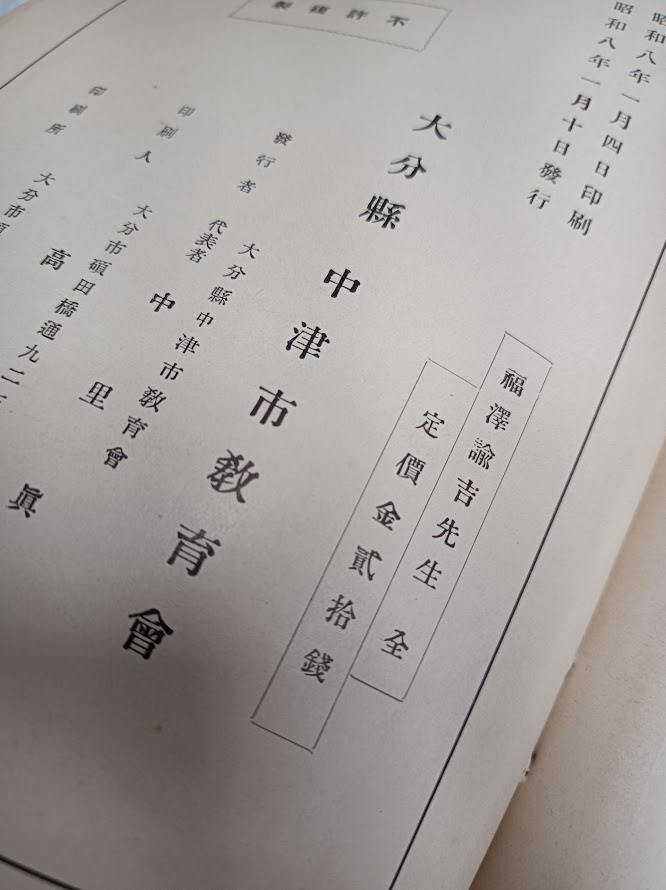 昭和八年一月四日印刷
昭和八年一月十日發行
福澤諭吉先生 全
定價金貳拾錢
不許複製
大分縣 中津市敎育會
發行者 大分縣中津市敎育會
代表者 中里
印刷人 大分市碩田橋通九二
高 眞
印刷所 大分市